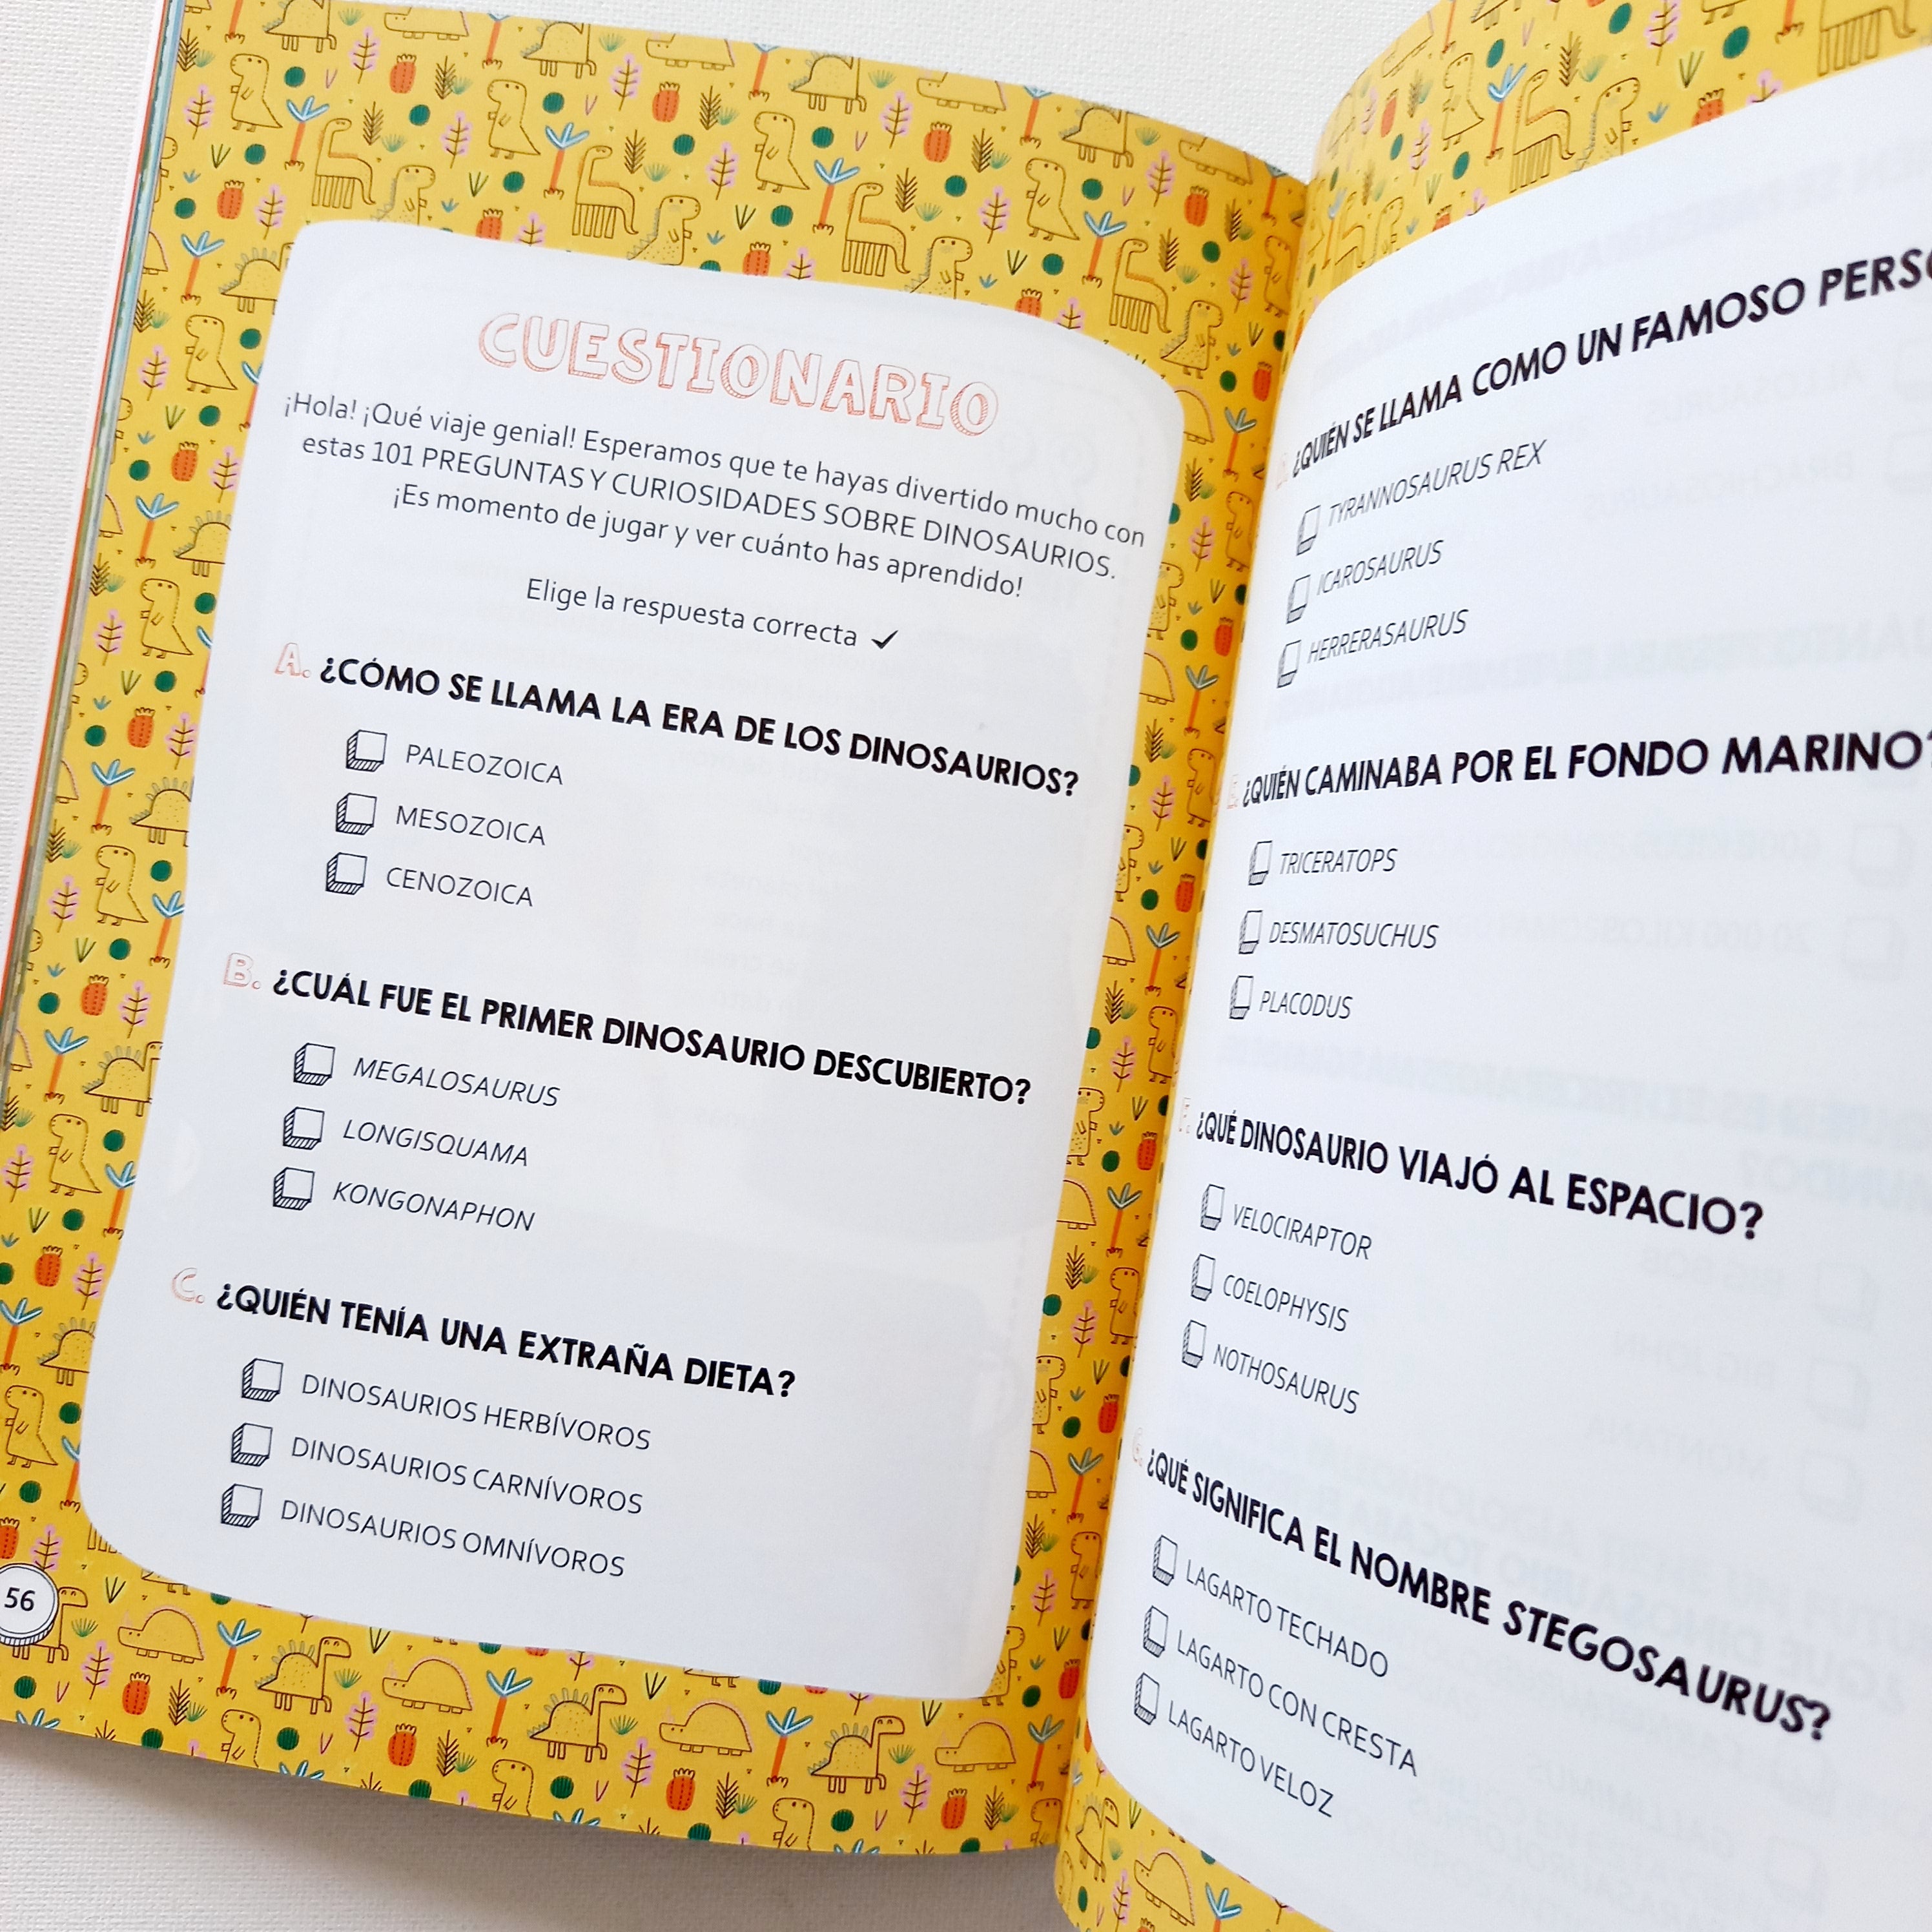 CUESTIONARIO
¡Hola! ¡Qué viaje genial! Esperamos que te hayas divertido mucho con
estas 101 PREGUNTAS Y CURIOSIDADES SOBRE DINOSAURIOS.
¡Es momento de jugar y ver cuánto has aprendido!
Elige la respuesta correcta ✓
A. ¿CÓMO SE LLAMA LA ERA DE LOS DINOSAURIOS?
PALEOZOICA
MESOZOICA
CENOZOICA
B. ¿CUÁL FUE EL PRIMER DINOSAURIO DESCUBIERTO?
MEGALOSAURUS
LONGISQUAMA
KONGONAPHON
C. ¿QUIÉN TENÍA UNA EXTRAÑA DIETA?
DINOSAURIOS HERBÍVOROS
DINOSAURIOS CARNÍVOROS
DINOSAURIOS OMNÍVOROS
56
¿QUIÉN SE LLAMA COMO UN FAMOSO
TYRANNOSAURUS REX
ICAROSAURUS
HERRERASAURUS
¿QUIÉN CAMINABA POR EL FONDO MARINO?
TRICERATOPS
DESMATOSUCHUS
PLACODUS
¿QUÉ DINOSAURIO VIAJÓ AL ESPACIO?
VELOCIRAPTOR
COELOPHYSIS
NOTHOSAURUS
¿QUÉ SIGNIFICA EL NOMBRE STEGOSAURUS?
LAGARTO TECHADO
LAGARTO CON CRESTA
LAGARTO VELOZ